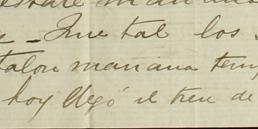 mañana
- Que tal los
talon mañana temp
hoy llegó el tren de